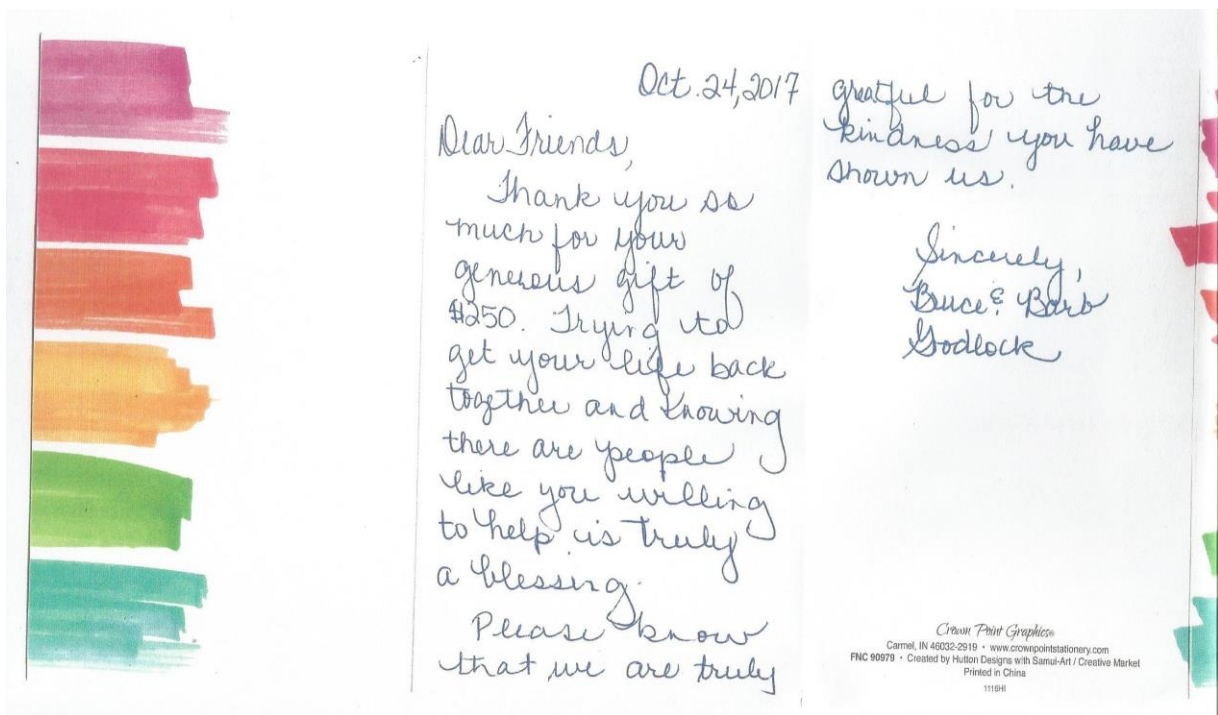 Oct. 24, 2017
Dear Friends,
Thank you so
much for your
generous gift of
$250. Trying to
get your life back
together and knowing
there are people
like you willing
to help is truly
a blessing.
Please know
that we are truly
greatful for the
kindness you have
shown us.
Sincerely,
Bruce & Barb
Godlock
Crown Point Graphics®
Carmel, IN 46032-2919 • www.crownpointstationery.com
FNC 90979 • Created by Hutton Designs with Samui-Art / Creative Market
Printed in China
1116HI